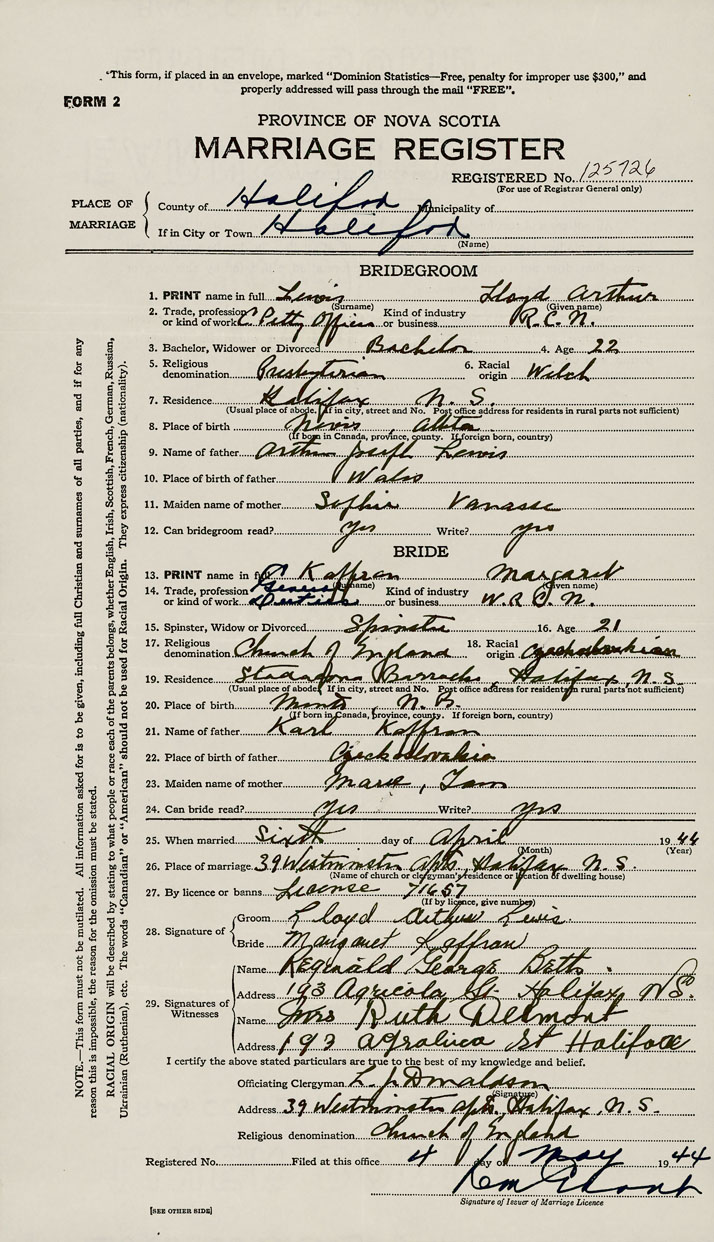 "This form, if placed in an envelope, marked "Dominion Statistics—Free, penalty for improper use $300," and
properly addressed will pass through the mail "FREE".
FORM 2
PROVINCE OF NOVA SCOTIA
MARRIAGE REGISTER
REGISTERED No. 125726
(For use of Registrar General only)
PLACE OF MARRIAGE
County of Halifax Municipality of
If in City or Town Halifax
(Name)
BRIDEGROOM
1. PRINT name in full Lewis Lloyd Arthur
(Surname) (Given name)
2. Trade, profession or kind of work C. Petty Officer Kind of industry or business R.C.N.
3. Bachelor, Widower or Divorced Bachelor 4. Age 22
5. Religious denomination Presbyterian 6. Racial origin Welch
7. Residence Halifax N.S.
(Usual place of abode. If in city, street and No. Post office address for residents in rural parts not sufficient)
8. Place of birth Nevis, Alta
(If born in Canada, province, county. If foreign born, country)
9. Name of father Arthur Joseph Lewis
10. Place of birth of father Wales
11. Maiden name of mother Sophia Vanasse
12. Can bridegroom read? yes Write? yes
BRIDE
13. PRINT name in full Kaffran Margaret
(Surname) (Given name)
14. Trade, profession or kind of work General Duties Kind of industry or business W.R.C.N.
15. Spinster, Widow or Divorced Spinster 16. Age 21
17. Religious denomination Church of England 18. Racial origin Czechoslovakian
19. Residence Stadacona Barracks, Halifax, N.S.
(Usual place of abode. If in city, street and No. Post office address for residents in rural parts not sufficient)
20. Place of birth N.B.
(If born in Canada, province, county. If foreign born, country)
21. Name of father Karl Kaffran
22. Place of birth of father Czechoslovakia
23. Maiden name of mother Marie,
24. Can bride read? yes Write? yes
25. When married Sixth day of April 1944
(Month) (Year)
26. Place of marriage 39 Westminster Apts, Halifax N.S.
(Name of church or clergyman's residence or location of dwelling house)
27. By licence or banns License 71657
(If by licence, give number)
28. Signature of
Groom Lloyd Arthur Lewis
Bride Margaret Kaffran
29. Signatures of Witnesses
Name Reginald George Betts.
Address 193 Agricola St Halifax, N.S.
Name Mrs Ruth Delmont
Address 193 Agralica St Halifax
I certify the above stated particulars are true to the best of my knowledge and belief.
Officiating Clergyman L. J. Donaldson
(Signature)
Address 39 Westminster Apts, Halifax, N.S.
Religious denomination Church of England
Registered No. Filed at this office 4 day of May 1944
Signature of Issuer of Marriage Licence
[SEE OTHER SIDE]
NOTE.—This form must not be mutilated. All information asked for is to be given, including full Christian and surnames of all parties, and if for any
reason this is impossible, the reason for the omission must be stated.
RACIAL ORIGIN will be described by stating to what people or race each of the parents belongs, whether English, Irish, Scottish, French, German, Russian,
Ukrainian (Ruthenian), etc. The words "Canadian" or "American" should not be used for Racial Origin. They express citizenship (nationality).